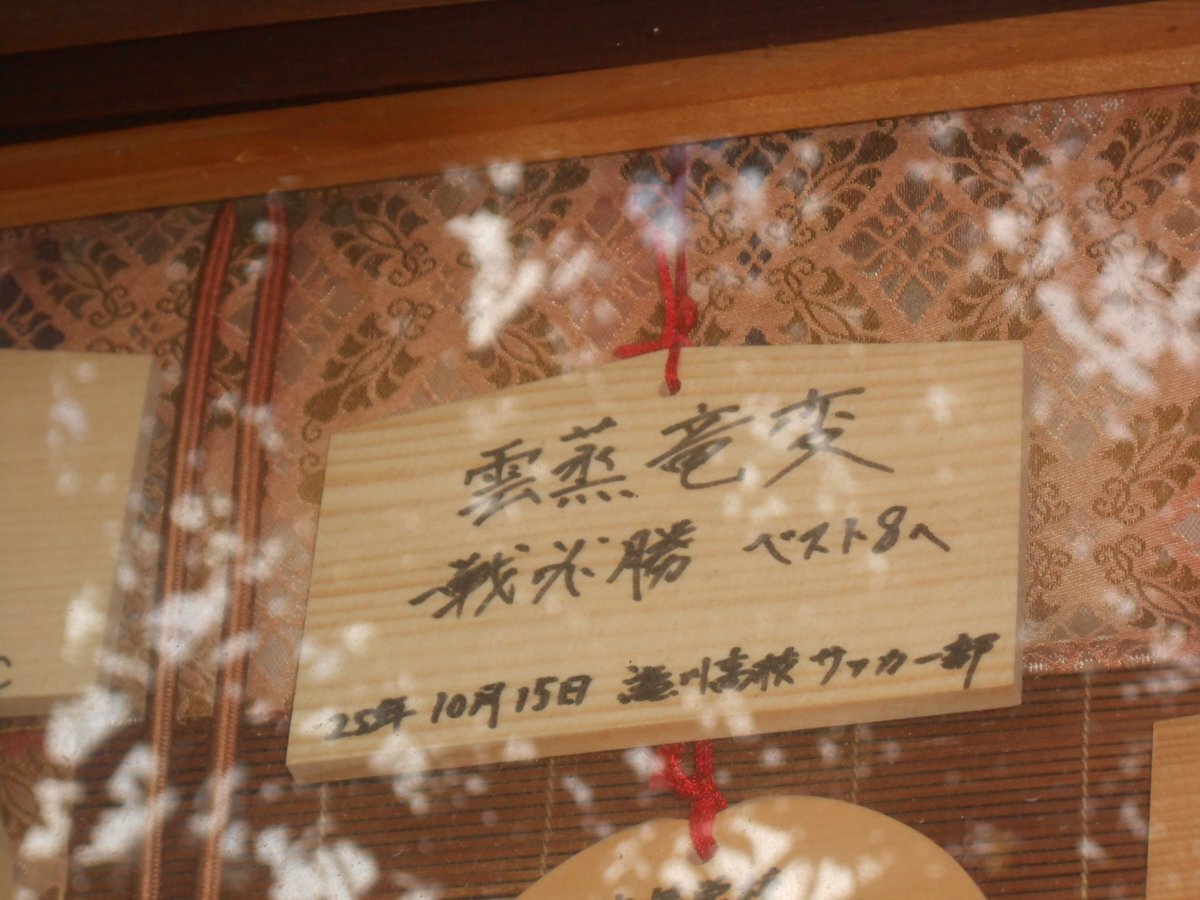 雲蒸竜変
戦必勝 ベスト8へ
25年 10月15日 川高校 サッカー部